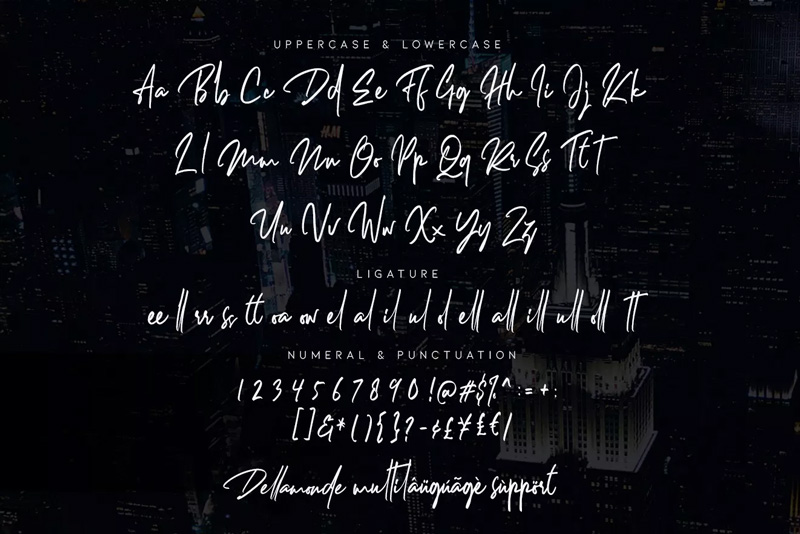 UPPERCASE & LOWERCASE
Aa Bb Cc Dd Ee Ff Gg Hh Ii Jj Kk
Ll Mm Nn Oo Pp Qq Rr Ss Tt T
Uu Vv Ww Xx Yy Zz
LIGATURE
ee ll rr ss tt oa ow el al il ul ol ell all ill ull oll TT
NUMERAL & PUNCTUATION
1234567890!@#$%^:=+:
[]&*(){}?-¢£¥₤€/
Dellamonde multilâügúãgè sùppört